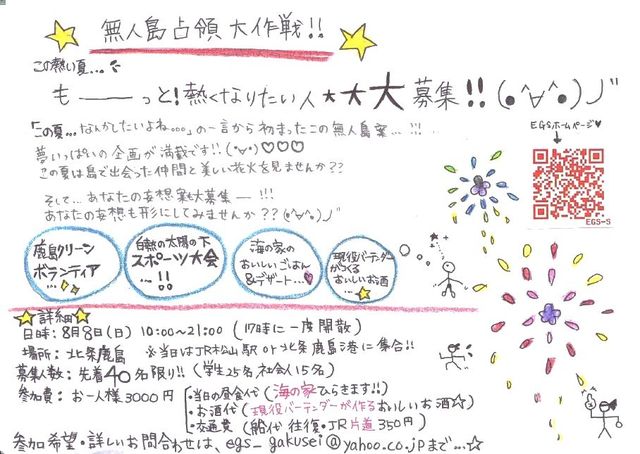 無人島占領大作戦!!
この熱い夏...
もーーっと!熱くなりたい人★★大募集!!(•^∀^•)ノ"
EGSホームページ♥
EGS-S
「この夏...なんかしたいよね。。。」の一言から始まったこの無人島案...!!
夢いっぱいの企画が満載です!!(°∀°)♡♡♡
この夏は島で出会った仲間と美しい花火を見ませんか??
そして...あなたの妄想案も大募集ー!!!
あなたの妄想も形にしてみませんか??(•^∀^•)ノ
鹿島クリーンボランティア...
白熱の太陽の下スポーツ大会...!!
海の家のおいしいごはん&デザート...♥
現役バーテンダーがつくるおいしいお酒...☆
☆詳細☆
日時:8月8日(日) 10:00~21:00 (17時に一度開散)
場所:北条鹿島 ※当日はJR松山駅or北条鹿島港に集合!!
募集人数:先着40名限り!!(学生25名 社会人15名)
参加費:お一人様3000円
・当日の昼食代(海の家ひらきます!!)
・お酒代(現役バーテンダーが作るおいしいお酒☆)
・交通費(船代 往復・JR片道350円)
参加希望・詳しいお問合わせは、egs_gakusei@yahoo.co.jpまで...☆